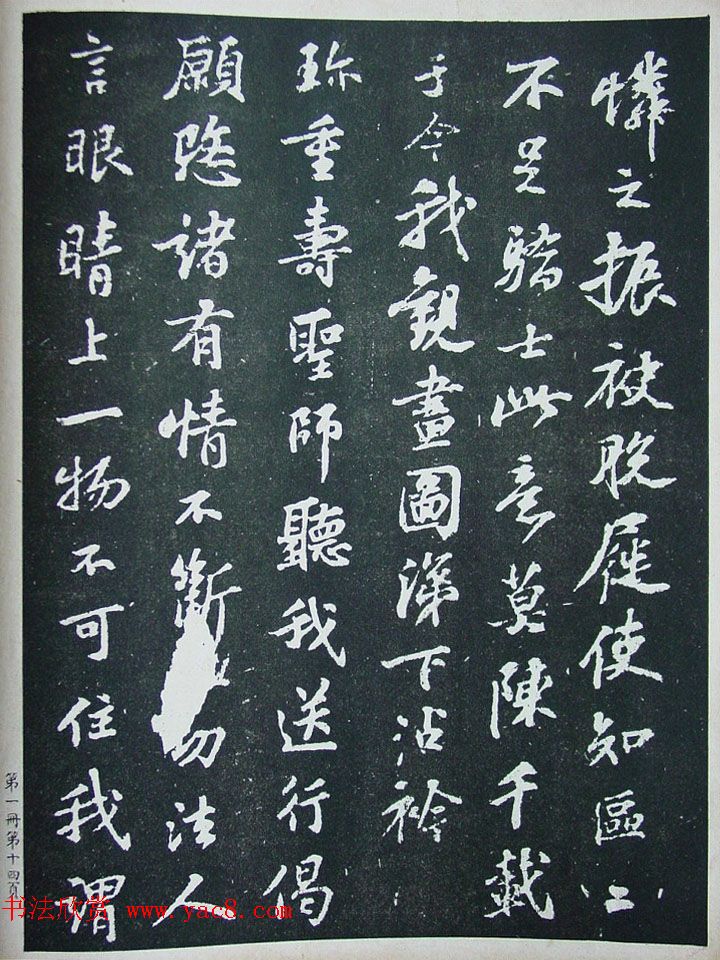 憐之振袂脫屣使知區〻
不足驕士此意莫陳千載
于今我觀畫圖涕下沾衿
珍重壽聖師聽我送行偈
願愍諸有情不斷切法人
言眼睛上一物不可住我謂
第一冊第十四頁
书法欣赏 www.yac8.com